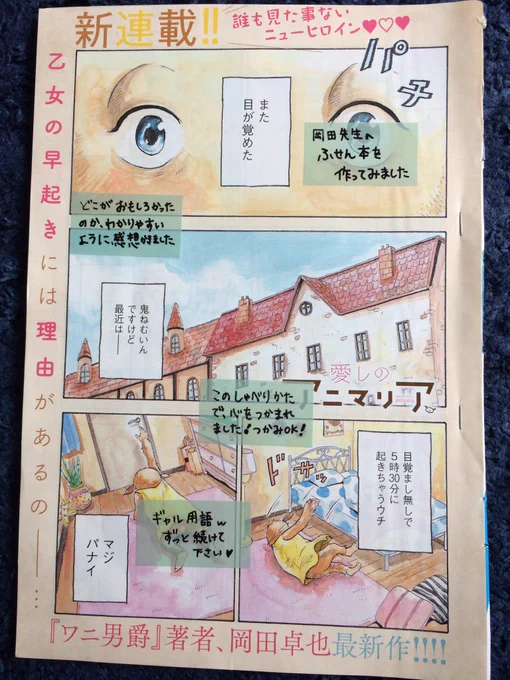 新連載!!
誰も見た事ない
ニューヒロイン♥♡♥
乙女の早起きには理由があるの――…
パチ
また
目が覚めた
岡田先生へ
ふせん本を
作ってみました
どこがおもしろかった
のか、わかりやすい
ように、感想かきました
鬼ねむいん
ですけど
最近は――
愛しの
アニマリア
このしゃべりかた
で、心をつかまれ
ました♪つかみOK!
目覚まし無しで
5時30分に
起きちゃうウチ
ドサッ
ギャル用語w
ずっと続けて
下さい♥
マジ
パナイ
『ワニ男爵』著者、岡田卓也最新作!!!!